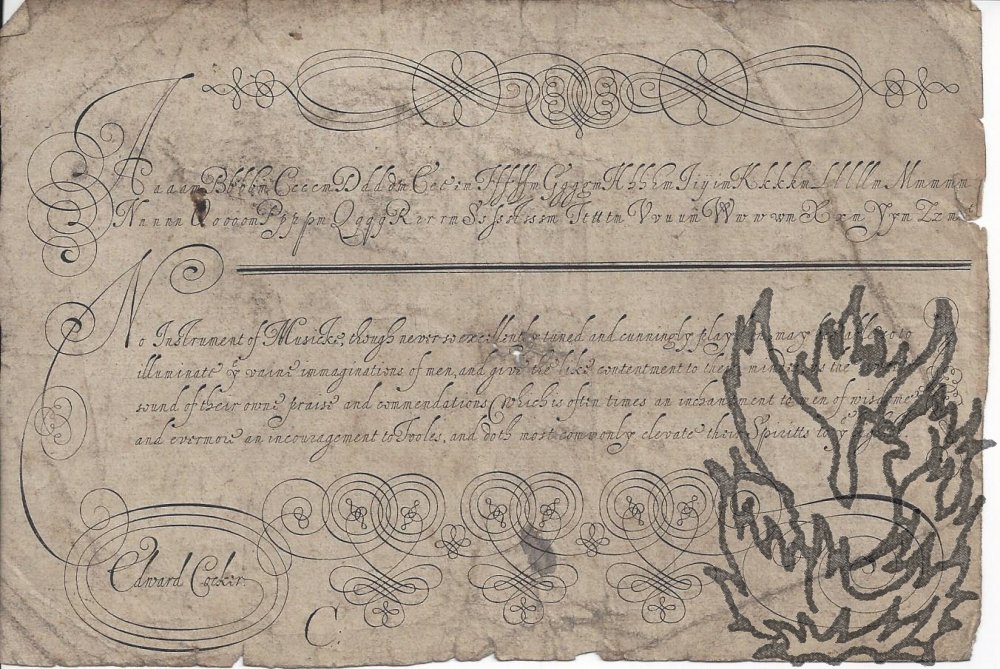 A a a a m B b b b m C c c c m D d d d m E e e m F f f f m G g g g m H h h h m I i y i m K k k k m L l l l l m M m m m m
N n n n n O o o o m P p p p m Q q q q R r r r m S s s s s s s m T t t t m V v u u m W w w w m X x m Y y m Z z m
No Instrument of Musicke, though never so excellently tuned and cunningly play may
illuminate ye vaine immaginations of men, and give the like contentment to their minds as the
sound of their owne praise and commendations, which is often times an inchantment to men of wisdome
and evermore an incouragement to Fooles, and doth most commonly elevate their Spiritts to
Edward Cocker.
C.